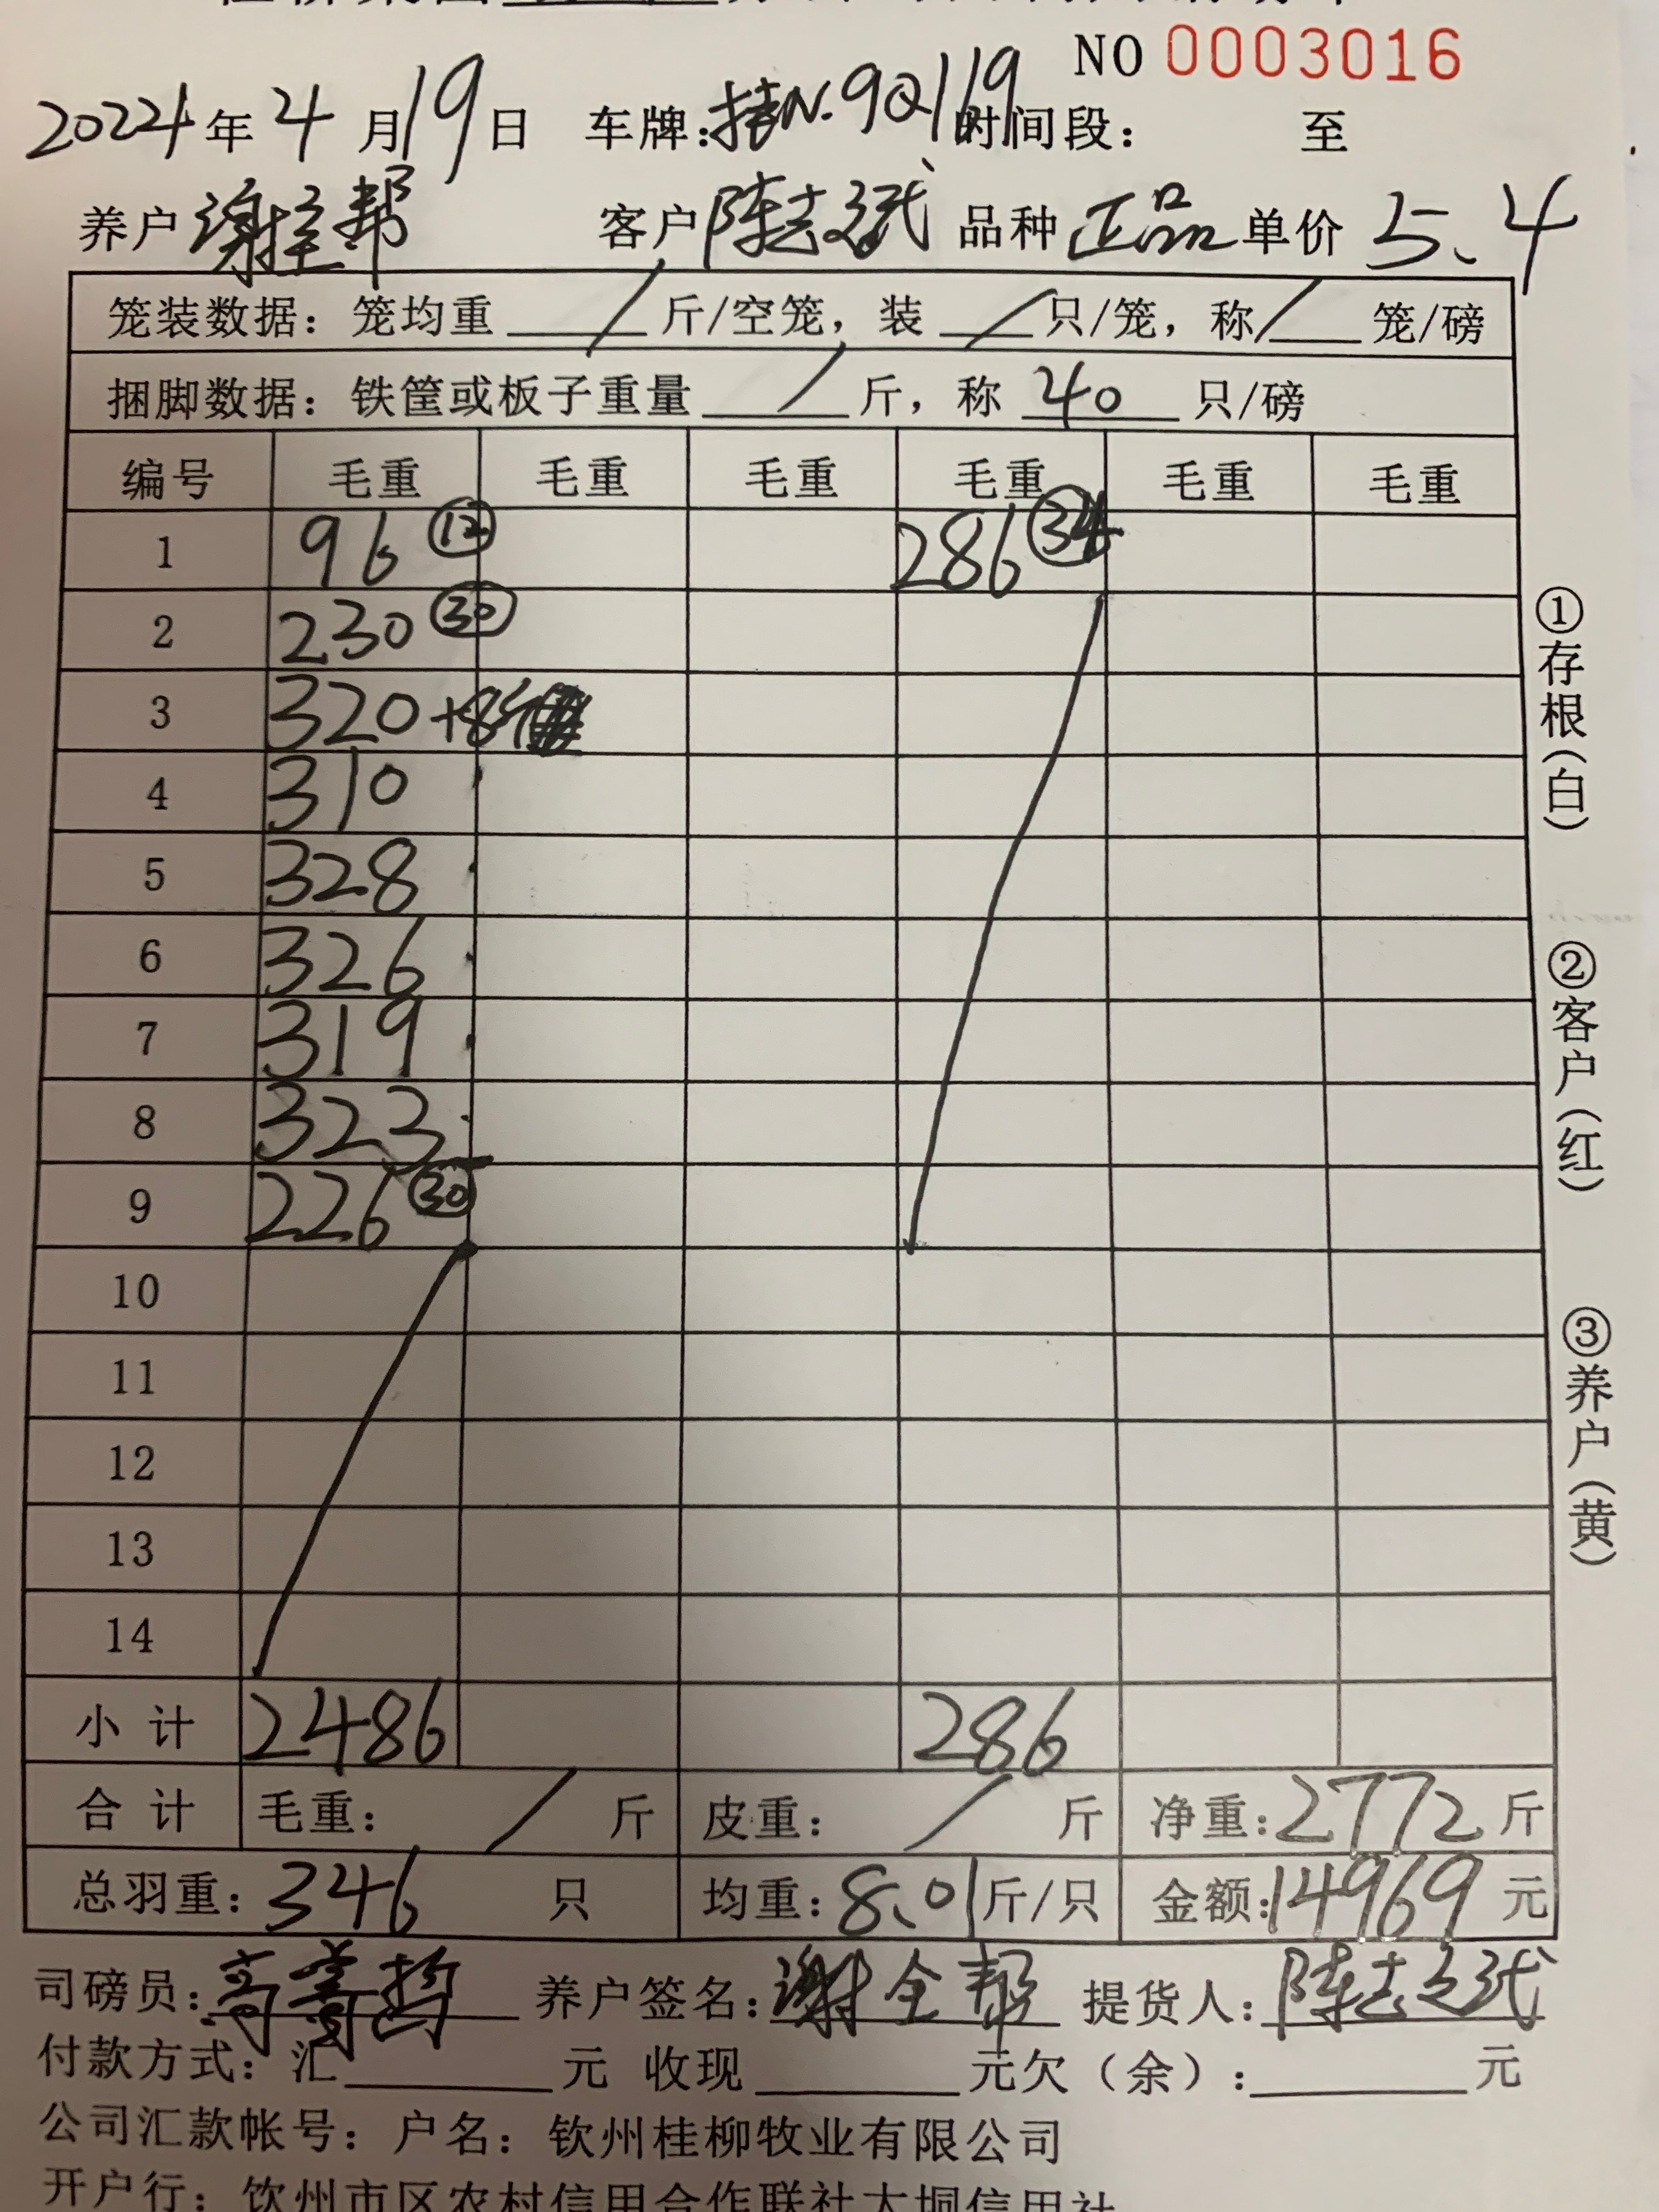 NO 0003016
2024年4月19日 车牌:桂N·9Q119 时间段: 至
养户 谢全帮 客户 陈志斌 品种 正品 单价 5.4
笼装数据: 笼均重 / 斤/空笼, 装 / 只/笼, 称 / 笼/磅
捆脚数据: 铁筐或板子重量 / 斤, 称 40 只/磅
编号 毛重 毛重 毛重 毛重 毛重 毛重
1 96 ⑫ 286 ㉞
2 230 ㉚
3 320+8
4 310
5 328
6 326
7 319
8 323
9 226 ㉚
10
11
12
13
14
小计 2486 286
合计 毛重: / 斤 皮重: / 斤 净重: 2772 斤
总羽重: 346 只 均重: 8.01 斤/只 金额: 14969 元
司磅员: 养户签名: 谢全帮 提货人: 陈志斌
付款方式: 汇 元 收现 元欠(余): 元
公司汇款帐号: 户名: 钦州桂柳牧业有限公司
开户行: 钦州市区农村信用合作联社大垌信用社
①存根(白)
②客户(红)
③养户(黄)